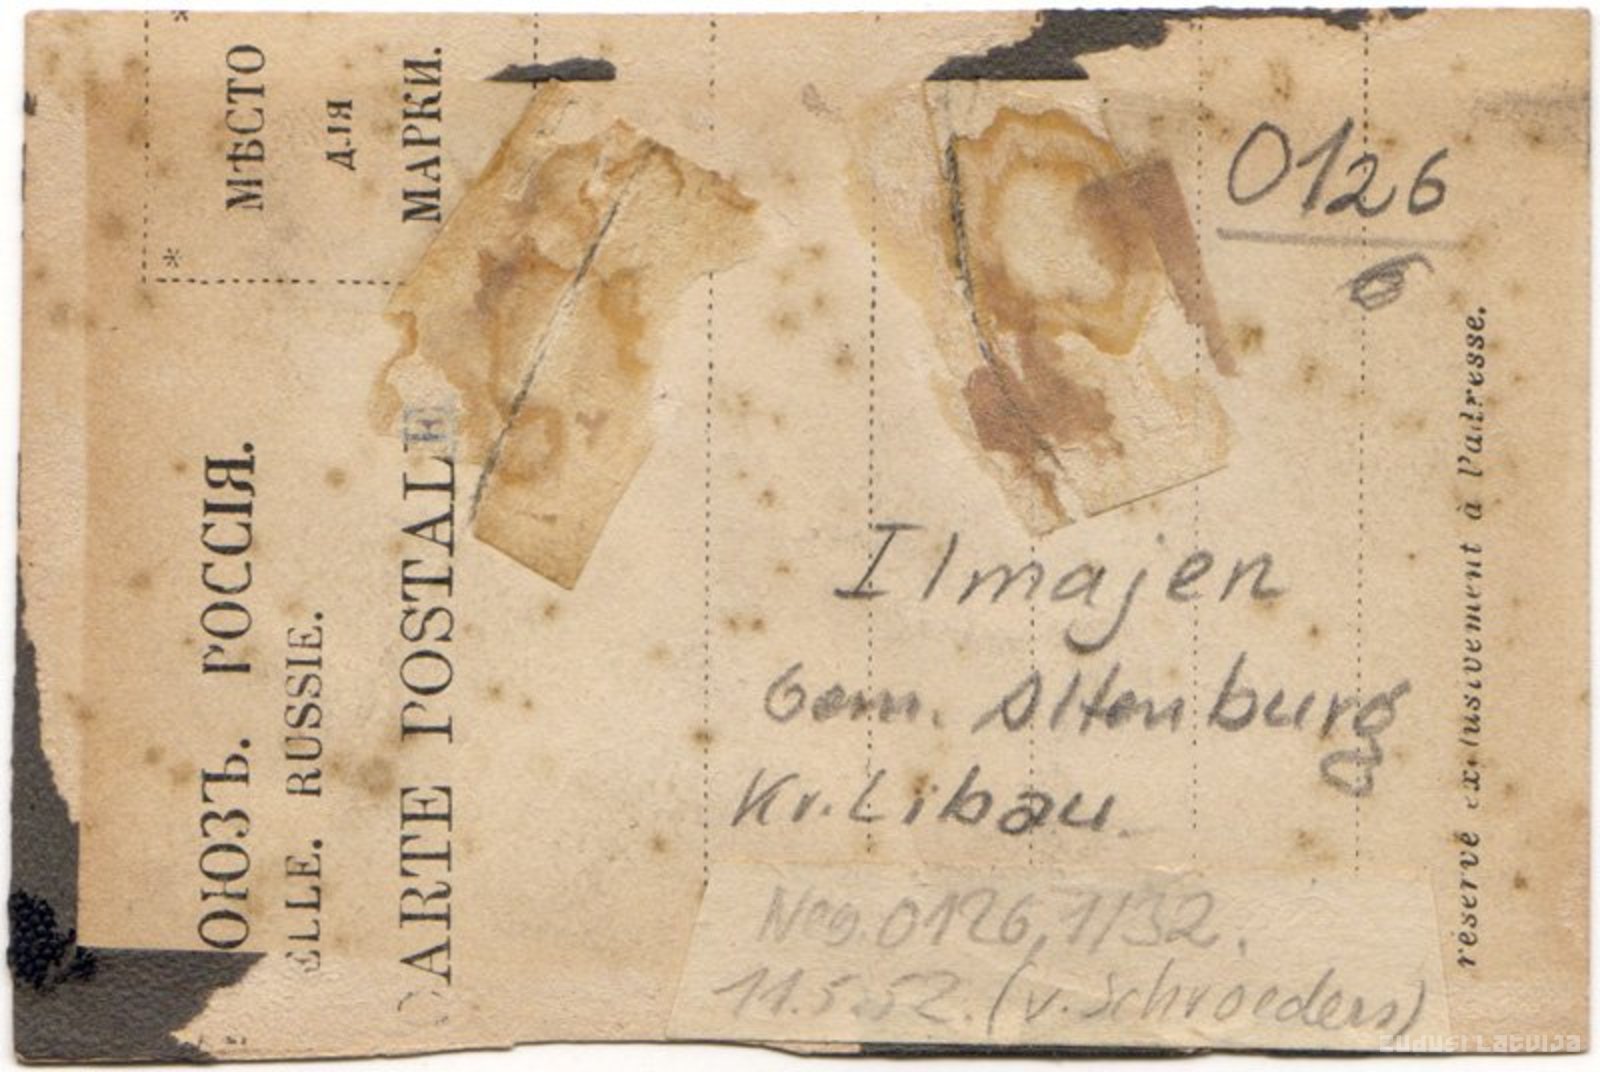 МѢСТО
ДЛЯ
МАРКИ.
ОЮЗЪ. РОССІЯ.
ELLE. RUSSIE.
CARTE POSTALE
0126
6
Ilmajen
Gem. Altenburg
Kr. Libau.
Neg. 0126, 1/32.
11.5.52. (v. Schroeders)
réservé exclusivement à l'adresse.
zudusi latvija